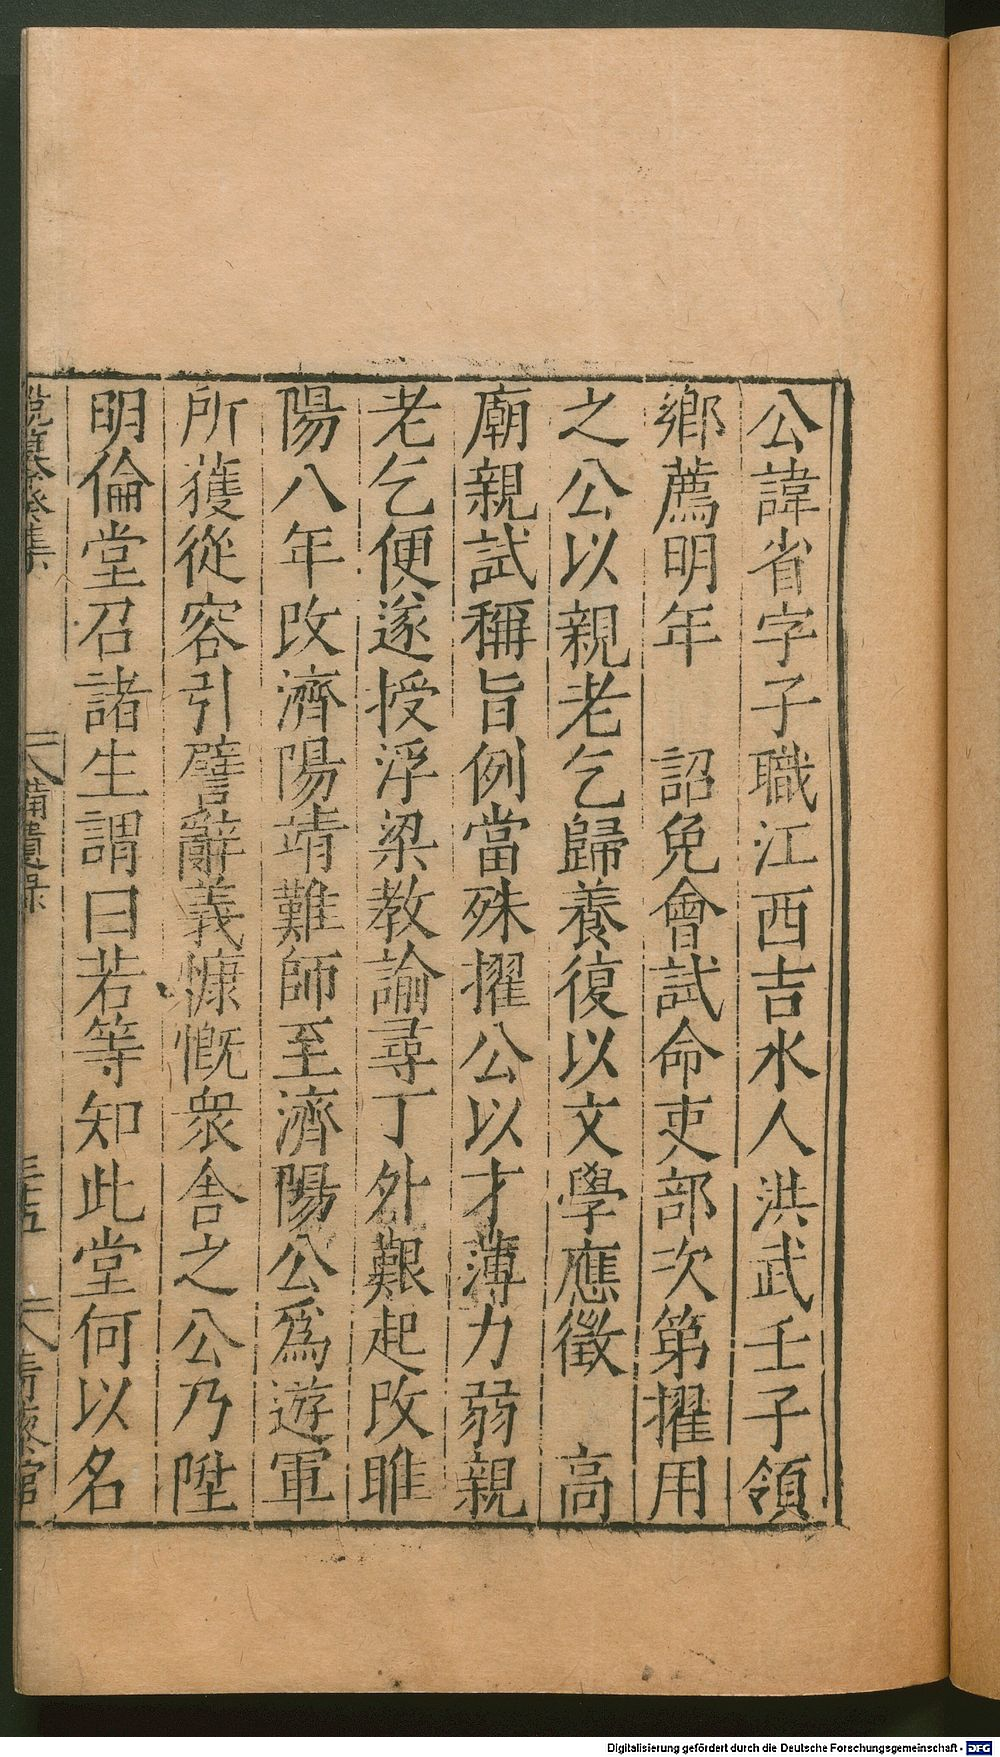 公諱省字子職江西吉水人洪武壬子領
鄉薦明年　詔免會試命吏部次第擢用
之公以親老乞歸養復以文學應徵　高
廟親試稱旨例當殊擢公以才薄力弱親
老乞便遂授浮梁教諭尋丁外艱起改睢
陽八年改濟陽靖難師至濟陽公爲遊軍
所獲從容引譬辭義慷慨衆舍之公乃陞
明倫堂召諸生謂曰若等知此堂何以名
集
備遺錄
Digitalisierung gefördert durch die Deutsche Forschungsgemeinschaft - DFG